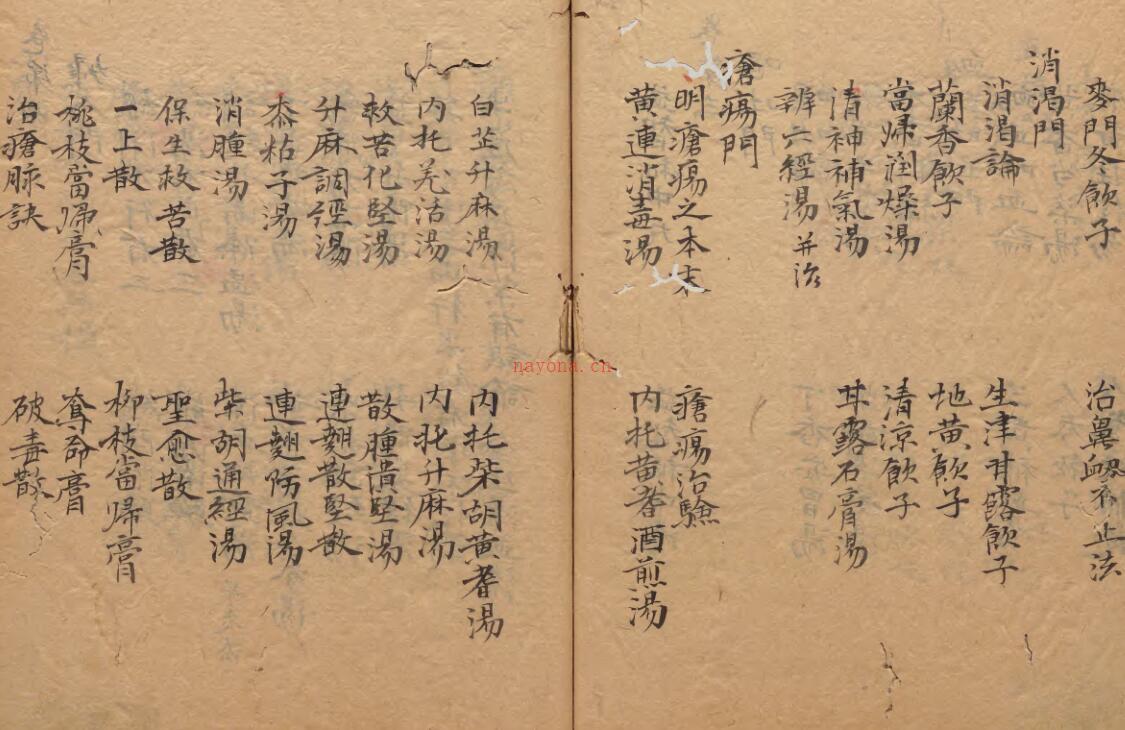 麥門冬飲子 治鼻衂不止法
消渴門
消渴論 生津甘露飲子
蘭香飲子 地黃飲子
當歸潤燥湯 清涼飲子
清神補氣湯 甘露石膏湯
辨六經湯并治
瘡瘍門
明瘡瘍之本末 瘡瘍治驗
黃連消毒湯 內托黃耆酒煎湯
白芷升麻湯 內托柴胡黃耆湯
內托羌活湯 內托升麻湯
救苦化堅湯 散腫潰堅湯
升麻調經湯 連翹散堅散
黍粘子湯 連翹防風湯
消腫湯 柴胡通經湯
保生救苦散 聖愈散
一上散 柳枝當歸膏
桃枝當歸膏 奪命膏
治瘡脉訣 破毒散
nayona.cn